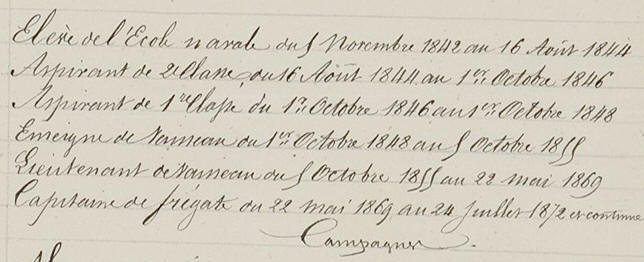 Elève de l'Ecole navale du 5 Novembre 1842 au 16 Août 1844
Aspirant de 2e Classe, du 16 Août 1844 au 1er Octobre 1846
Aspirant de 1re Classe du 1er Octobre 1846 au 1er Octobre 1848
Enseigne de Vaisseau du 1er Octobre 1848 au 5 Octobre 1855
Lieutenant de Vaisseau du 5 Octobre 1855 au 22 mai 1869
Capitaine de frégate du 22 mai 1869 au 24 Juillet 1872 et continue
Campagnes.